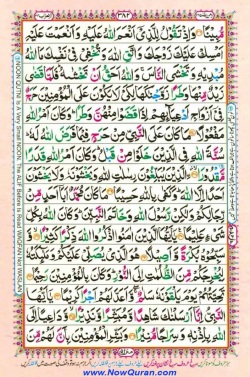 ٣٨٢
مُّبِيْنًا وَاِذْ تَقُوْلُ لِلَّذِيْۤ اَنْعَمَ اللّٰهُ عَلَيْهِ وَاَنْعَمْتَ عَلَيْهِ
اَمْسِكْ عَلَيْكَ زَوْجَكَ وَاتَّقِ اللّٰهَ وَتُخْفِيْ فِيْ نَفْسِكَ مَا اللّٰهُ
مُبْدِيْهِ وَتَخْشَى النَّاسَ وَاللّٰهُ اَحَقُّ اَنْ تَخْشٰىهُ فَلَمَّا قَضٰى
زَيْدٌ مِّنْهَا وَطَرًا زَوَّجْنٰكَهَا لِكَيْ لَا يَكُوْنَ عَلَى الْمُؤْمِنِيْنَ حَرَجٌ
فِيْۤ اَزْوَاجِ اَدْعِيَآئِهِمْ اِذَا قَضَوْا مِنْهُنَّ وَطَرًا وَكَانَ اَمْرُ اللّٰهِ
مَفْعُوْلًا مَا كَانَ عَلَى النَّبِيِّ مِنْ حَرَجٍ فِيْمَا فَرَضَ اللّٰهُ لَهٗ
سُنَّةَ اللّٰهِ فِي الَّذِيْنَ خَلَوْا مِنْ قَبْلُ وَكَانَ اَمْرُ اللّٰهِ قَدَرًا
مَّقْدُوْرًا الَّذِيْنَ يُبَلِّغُوْنَ رِسٰلٰتِ اللّٰهِ وَيَخْشَوْنَهٗ وَلَا يَخْشَوْنَ
اَحَدًا اِلَّا اللّٰهَ وَكَفٰى بِاللّٰهِ حَسِيْبًا مَا كَانَ مُحَمَّدٌ اَبَاۤ اَحَدٍ مِّنْ
رِّجَالِكُمْ وَلٰكِنْ رَّسُوْلَ اللّٰهِ وَخَاتَمَ النَّبِيّٖنَ وَكَانَ اللّٰهُ بِكُلِّ
شَيْءٍ عَلِيْمًا يٰۤاَيُّهَا الَّذِيْنَ اٰمَنُوا اذْكُرُوا اللّٰهَ ذِكْرًا كَثِيْرًا وَّ
سَبِّحُوْهُ بُكْرَةً وَّاَصِيْلًا هُوَ الَّذِيْ يُصَلِّيْ عَلَيْكُمْ وَمَلٰٓئِكَتُهٗ
لِيُخْرِجَكُمْ مِّنَ الظُّلُمٰتِ اِلَى النُّوْرِ وَكَانَ بِالْمُؤْمِنِيْنَ رَحِيْمًا
تَحِيَّتُهُمْ يَوْمَ يَلْقَوْنَهٗ سَلٰمٌ وَاَعَدَّ لَهُمْ اَجْرًا كَرِيْمًا يٰۤاَيُّهَا
النَّبِيُّ اِنَّاۤ اَرْسَلْنٰكَ شَاهِدًا وَّمُبَشِّرًا وَّنَذِيْرًا وَّدَاعِيًا اِلَى
اللّٰهِ بِاِذْنِهٖ وَسِرَاجًا مُّنِيْرًا وَبَشِّرِ الْمُؤْمِنِيْنَ بِاَنَّ لَهُمْ مِّنَ
www.NowQuran.com